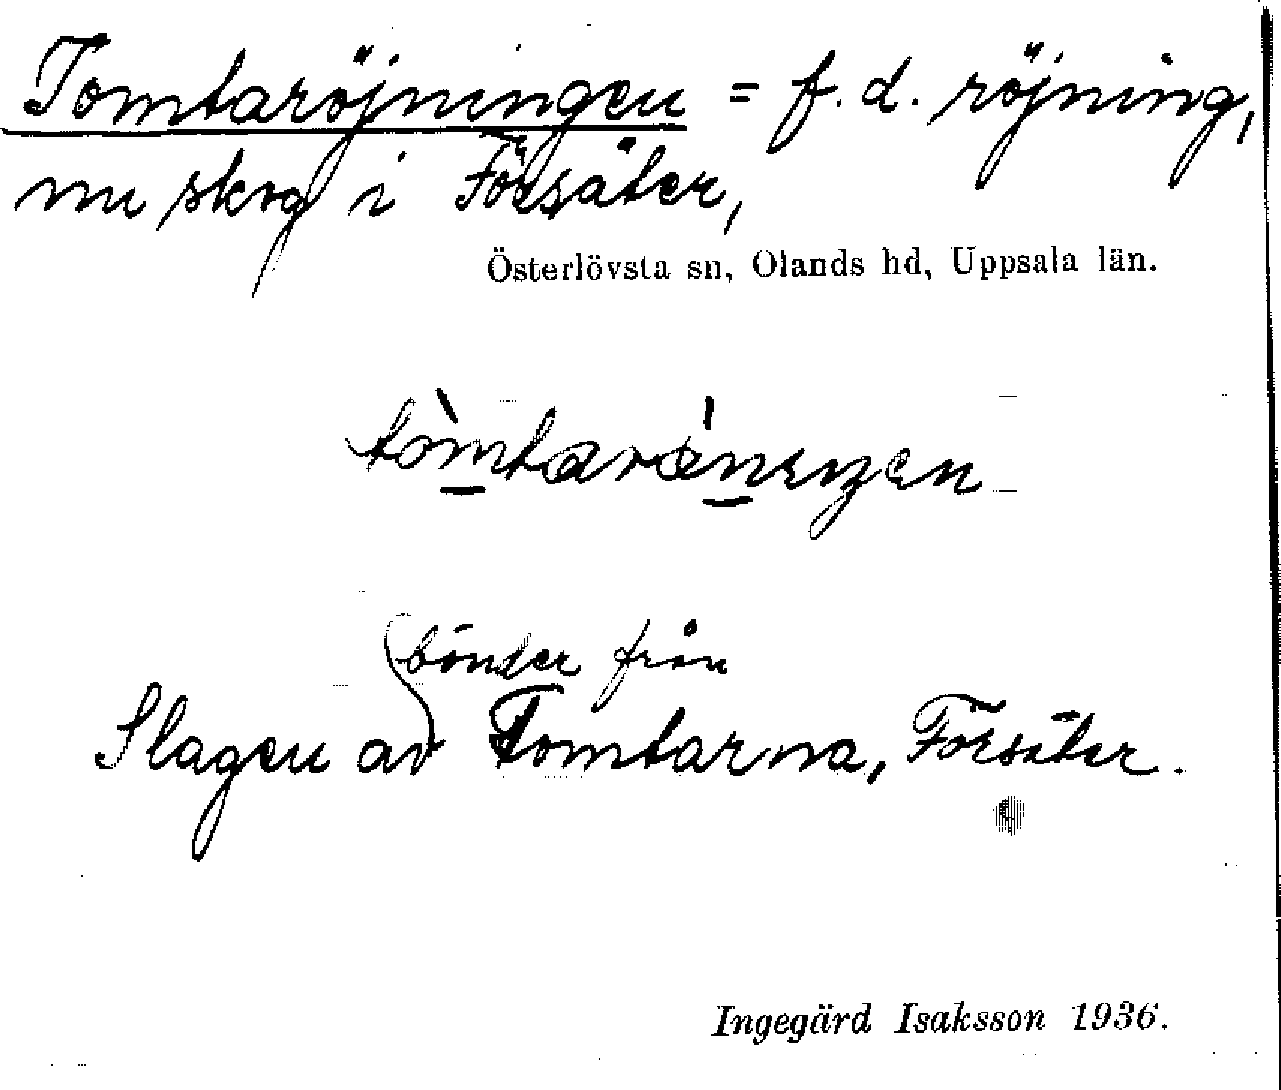 Tomtaröjningen = f.d. röjning,
nu skog i Försäter,
Österlövsta sn, Olands hd, Uppsala län.
bönder från
Slagen av Tomtarna, Försäter.
Ingegärd Isaksson 1936.